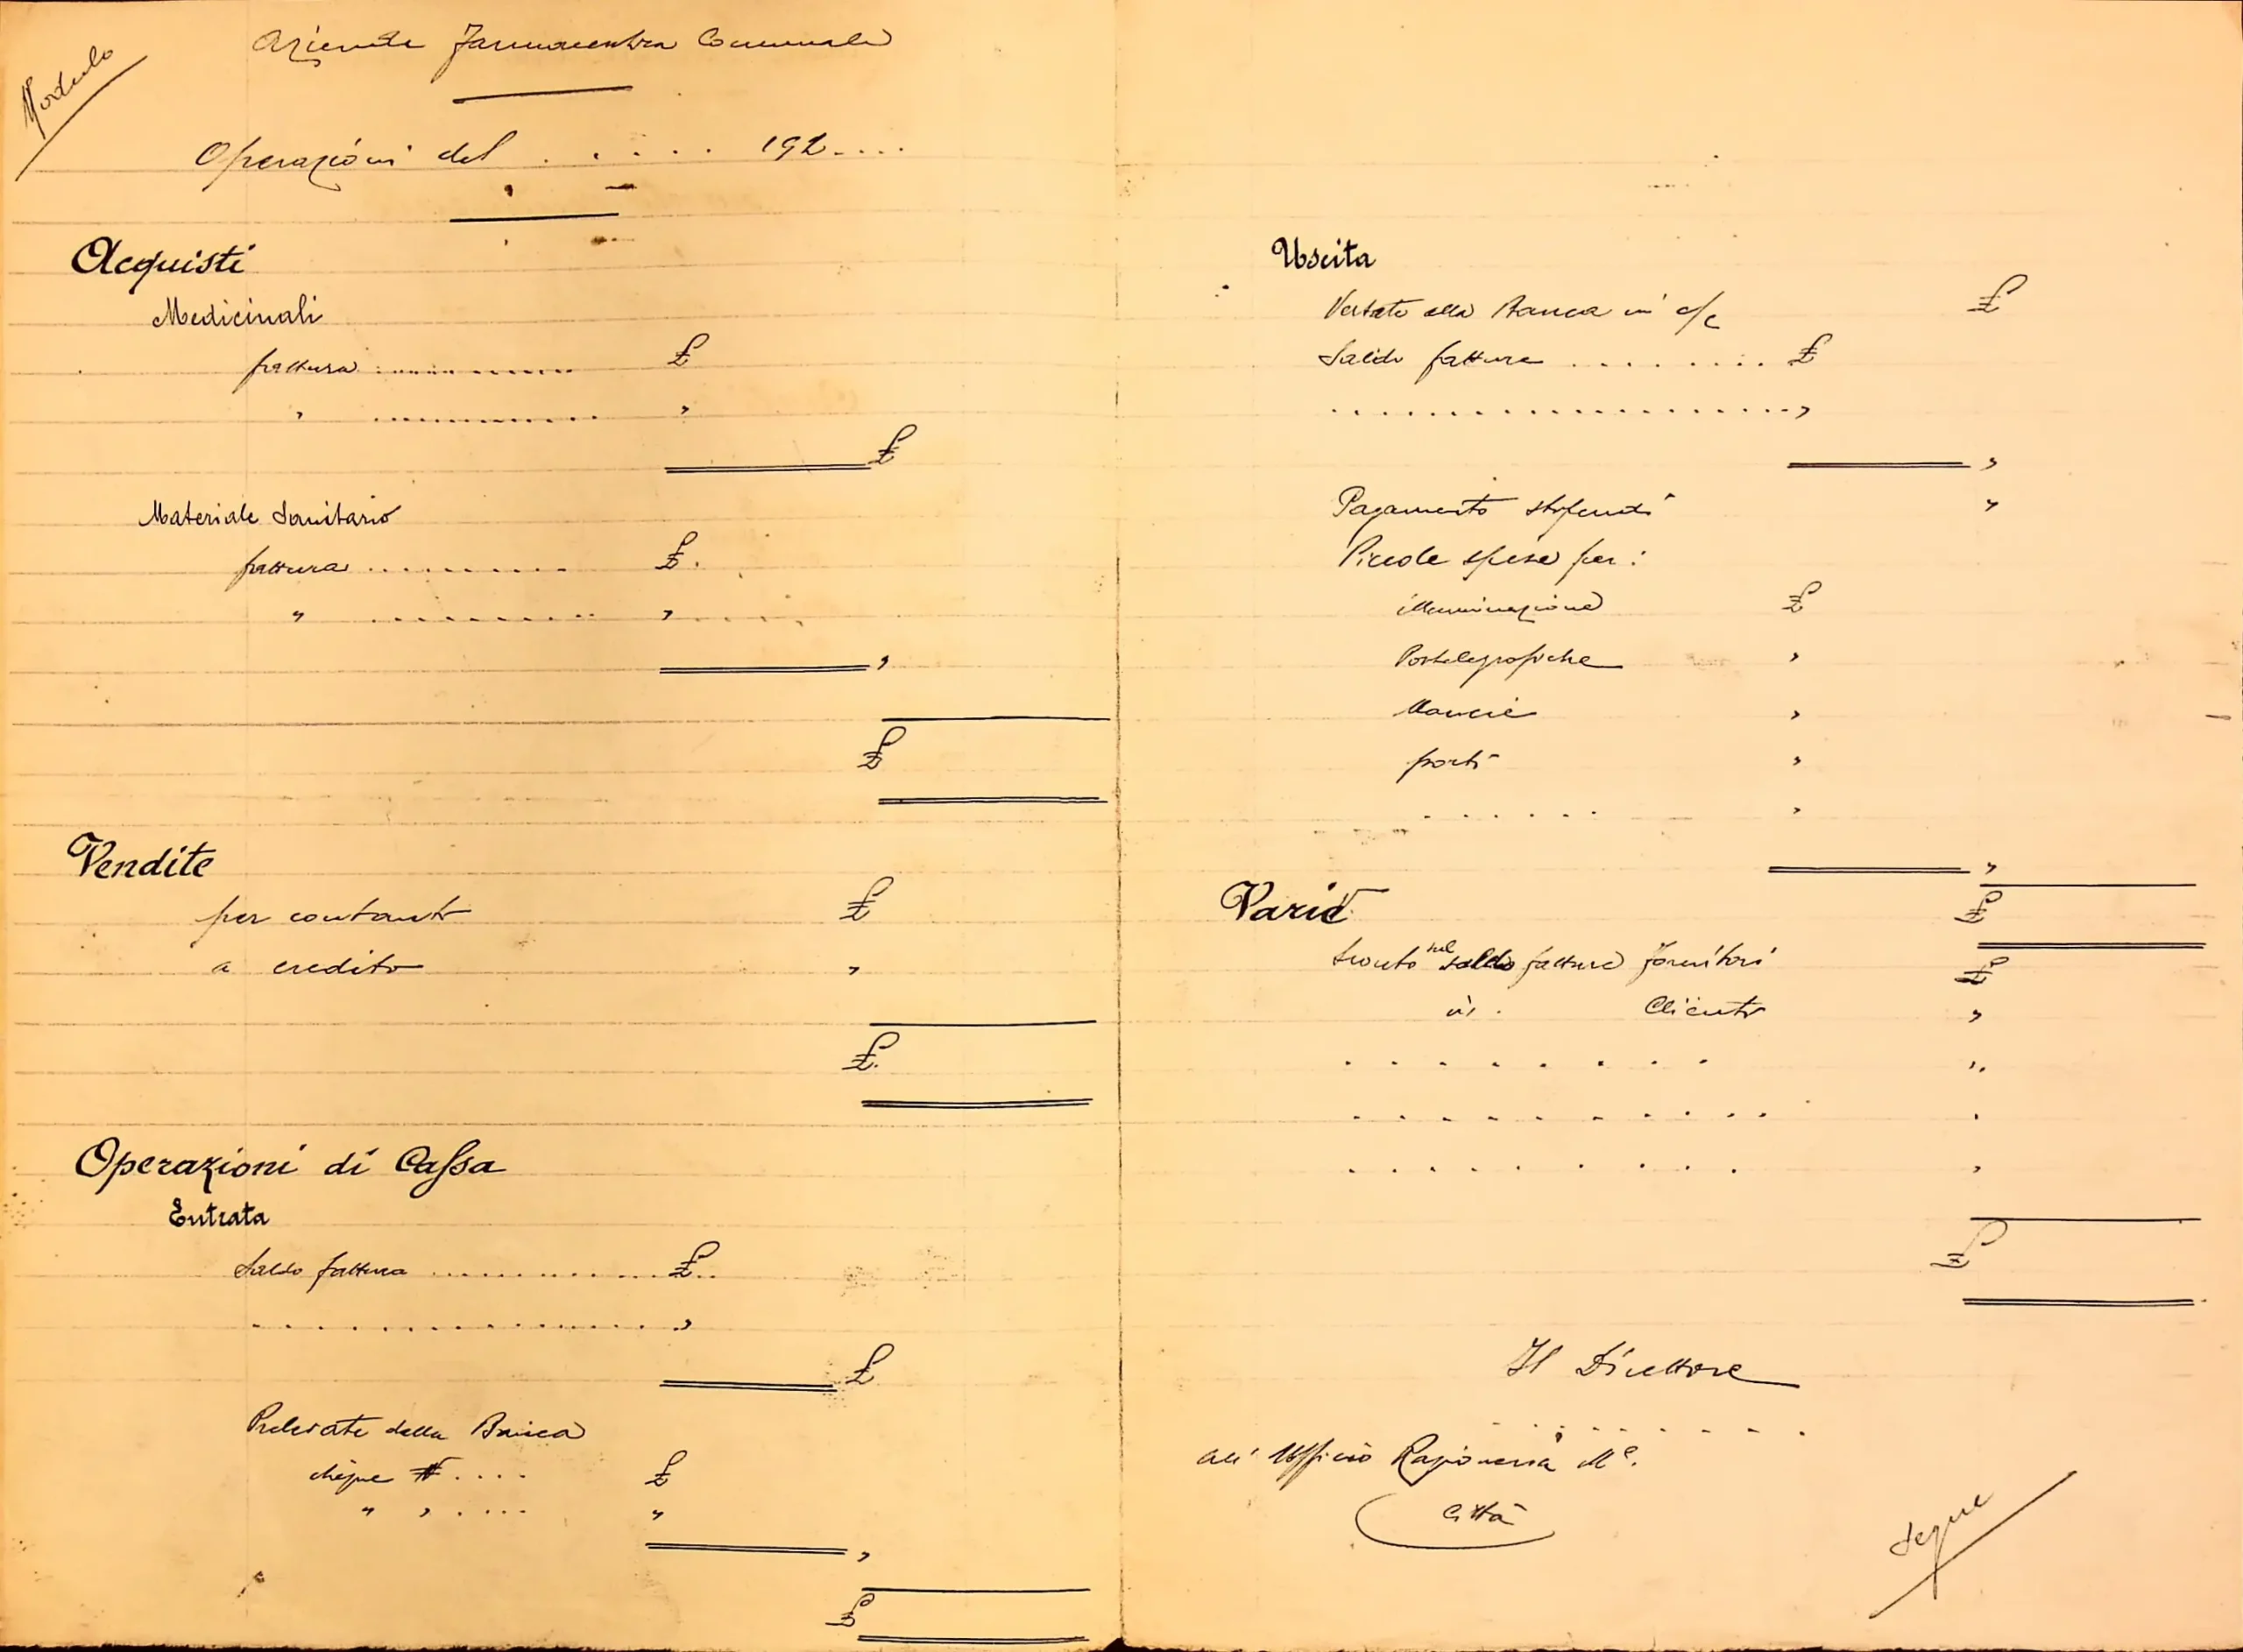 Modulo
Azienda Farmaceutica Comunale
Operazioni del . . . . . 192....
Acquisti
Medicinali
fattura ............... £
" ............... "
£
Materiale Sanitario
fattura ............ £.
" ............ "
"
£
Vendite
per contanti £
a credito "
£.
Operazioni di Cassa
Entrata
Saldo fattura ............... £..
. . . . . . . . . . . . . . . "
£
Prelevate dalla Banca
chèque N. .... £
" " .... "
"
£
Uscita
Versate alla Banca in c/c £
Saldo fatture ........ £
..................... "
"
Pagamento stipendi "
Piccole spese per:
illuminazione £
Postelegrafiche "
Mancie "
porti "
. . . . . . "
"
£
Varie
Sconto sul saldo fatture Fornitori £
id. Clienti "
. . . . . . . . . "
. . . . . . . . . . . "
. . . . . . . . . "
£
Il Direttore
. . . . . . . .
All' Ufficio Ragioneria Mle.
Città
Segue